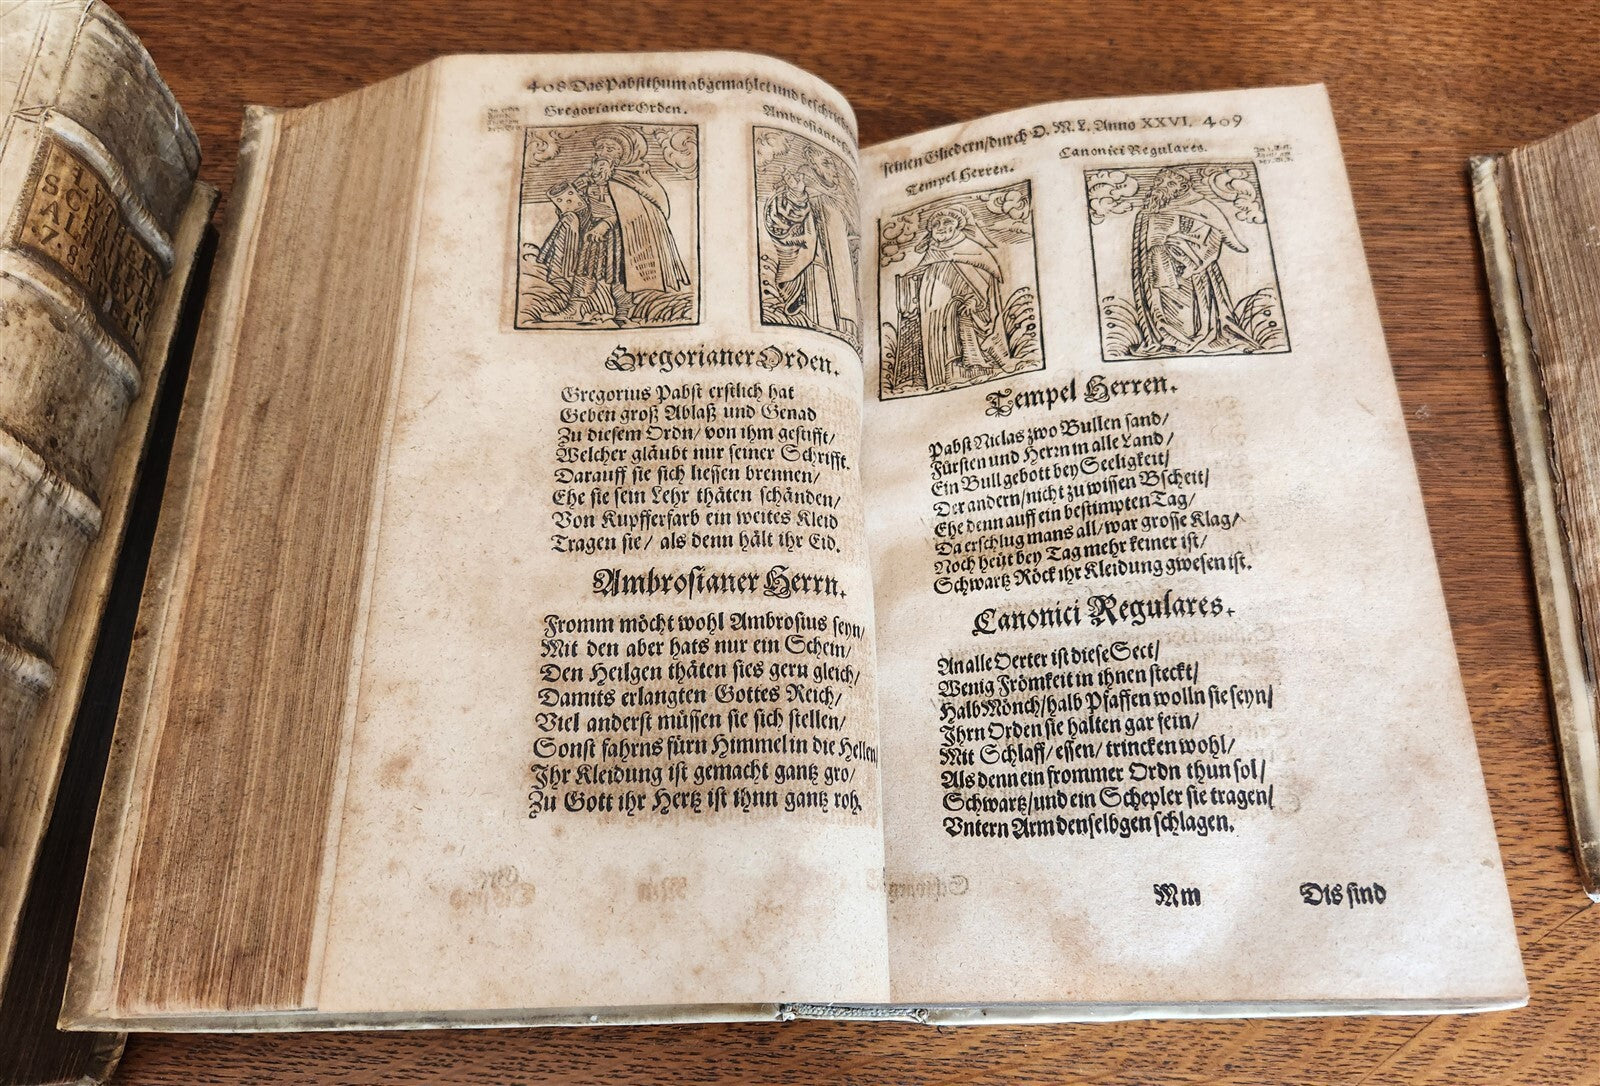 LUTHERI
SCHRIFTE
7. 8.
408 Das Pabstthum abgemahlet und beschrieben
Gregorianer Orden.
Ambrosianer
Gregorianer Orden.
Gregorius Pabst erstlich hat
Geben groß Ablaß und Genad
Zu diesem Ordn/ von ihm gestifft/
Welcher gläubt nur seiner Schrifft.
Darauff sie sich liessen brennen/
Ehe sie sein Lehr thäten schänden/
Von Kupfferfarb ein weites Kleid
Tragen sie/ als denn hält ihr Eid.
Ambrosianer Herrn.
Fromm möcht wohl Ambrosius seyn/
Mit den aber hats nur ein Schein/
Den Heilgen thäten sies gern gleich/
Damits erlangten Gottes Reich/
Viel anderst müssen sie sich stellen/
Sonst fahrns fürn Himmel in die Hellen
Ihr Kleidung ist gemacht gantz gro/
Zu Gott ihr Hertz ist ihnn gantz roh.
seinen Gliedern/durch D. M. L. Anno XXVI. 409
Tempel Herren.
Canonici Regulares.
Tempel Herren.
Pabst Niclas zwo Bullen sand/
Fürsten und Herrn in alle Land/
Ein Bull gebott bey Seeligkeit/
Der andern/nicht zu wissen Bscheit/
Ehe denn auff ein bestimpten Tag/
Da erschlug mans all/ war grosse Klag/
Noch heüt bey Tag mehr keiner ist/
Schwartz Röck ihr Kleidung gwesen ist.
Canonici Regulares.
An alle Oerter ist diese Sect/
Wenig Frömkeit in ihnen steckt/
Halb Mönch/halb Pfaffen wolln sie seyn/
Ihrn Orden sie halten gar fein/
Mit Schlaff/ essen/ trincken wohl/
Als denn ein frommer Ordn thun sol/
Schwartz/und ein Schepler sie tragen/
Untern Arm denselbgen schlagen.
Mm Dis sind